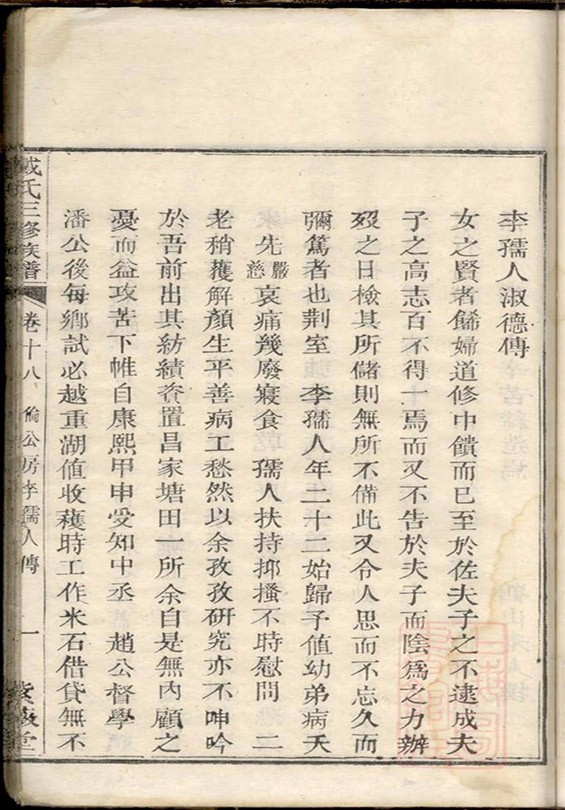 李孺人淑德傳
女之賢者餙婦道修中饋而已至於佐夫子之不逮成夫
子之高志百不得一焉而又不告於夫子而陰為之力辦
歿之日檢其所儲則無所不備此又令人思而不忘久而
彌篤者也荆室 李孺人年二十二始歸予值幼弟病夭
先嚴慈哀痛幾廢寢食 孺人扶持抑搔不時慰問 二
老稍獲解顏生平善病工愁然以余孜孜研究亦不呻吟
於吾前出其紡績資置昌家塘田一所余自是無內顧之
憂而益攻苦下帷自康熙甲申受知中丞 趙公督學
潘公後每鄉試必越重湖值收穫時工作米石借貸無不
戴氏三修族譜 卷十八 倫公房李孺人傳 一